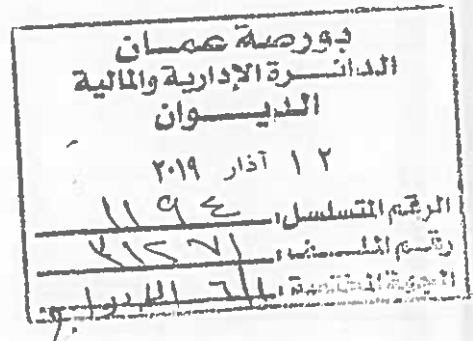 بورصة عمان
الدائرة الإدارية والمالية
الديوان
٢١ آذار ٢٠١٩
الرقم المتسلسل: ١١٩٤
رقم الملف: ٣١٢٧١
الجهة المختصة: